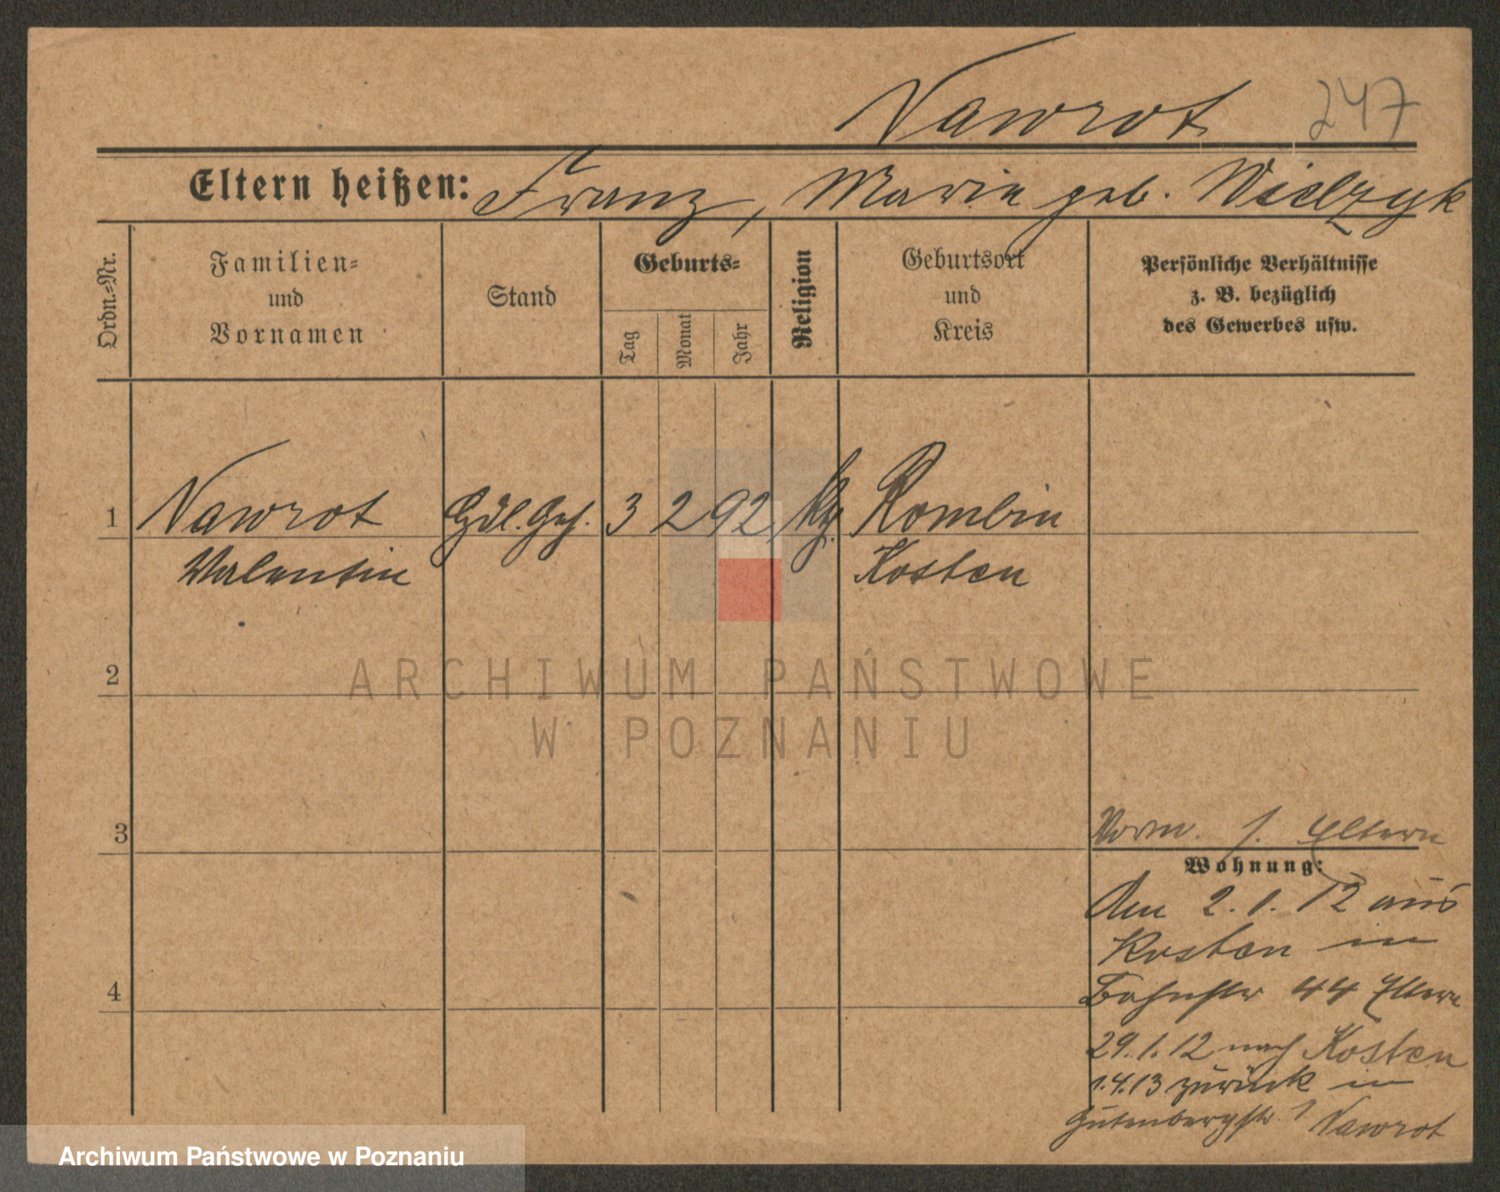 Nawrot 247
Eltern heißen: Franz, Marie geb. Wielzyk
Ordn.-Nr.
Familien-
und
Vornamen
Stand
Geburts-
Tag
Monat
Jahr
Religion
Geburtsort
und
Kreis
Persönliche Verhältnisse
z. B. bezüglich
des Gewerbes usw.
1 Nawrot 3 2 92 Rombin
Valentin Kosten
2
ARCHIWUM PAŃSTWOWE
W POZNANIU
3
Vorm. s. Eltern
Wohnung:
Am 2.1.12 aus
Kosten in
4
Bahnstr 44 Eltern
29.1.12 nach Kosten
1.4.13 zurück in
Gutenbergstr 1 Nawrot
Archiwum Państwowe w Poznaniu